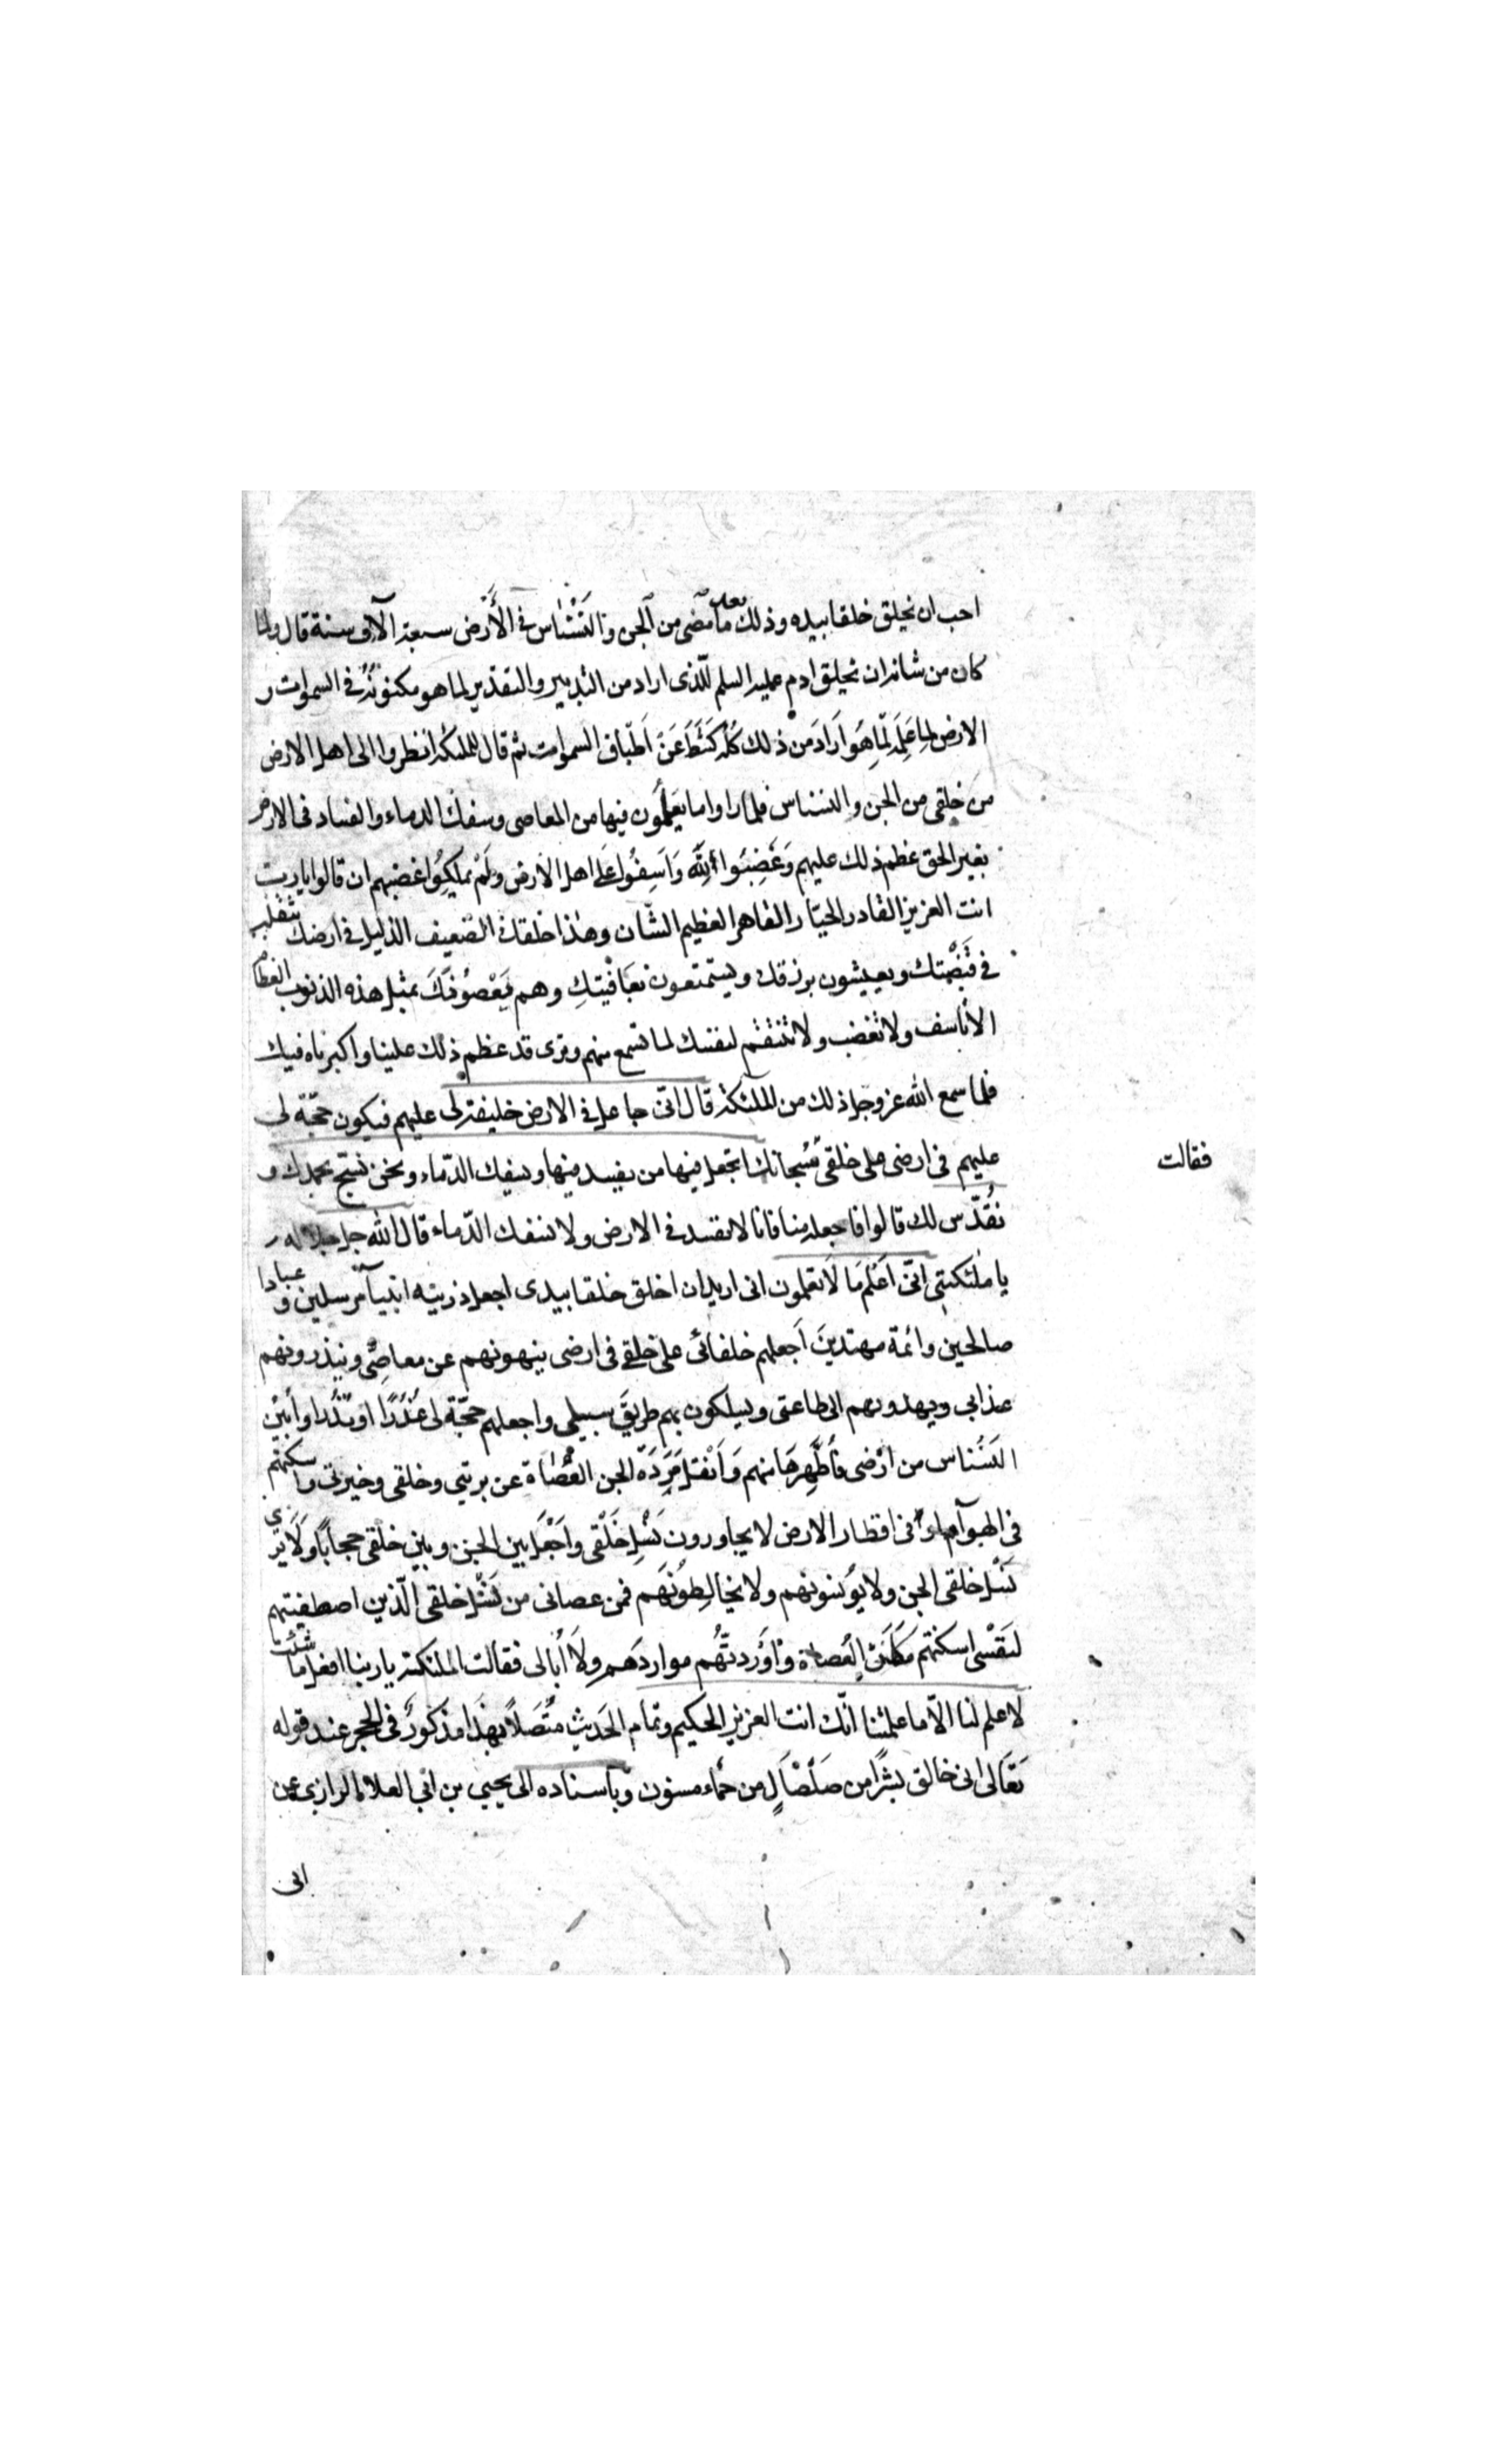 احب ان يخلق خلقا بيده وذلك بعد ما مضى من الجن والنسناس في الأرض سبعة الآف سنة قال ولما
كان من شانه ان يخلق ادم عليه السلم للذى اراد من التدبير والتقدير لما هو مكنونه في السموات و
الارض لما علمه لما هو اراد من ذلك كله كشط عن اطباق السموات ثم قال للملئكة انظروا الى اهل الارض
من خلقى من الجن والنسناس فلما راوا ما يعلمون فيها من المعاصى وسفك الدماء والفساد فى الارض
بغير الحق عظم ذلك عليهم وغضبوا لله واسفوا على اهل الارض ولم يملكوا غضبهم ان قالوا يا رب
انت العزيز القادر الجبّار القاهر العظيم الشّان وهذا خلقك الضعيف الذليل في ارضك يتقلبه
في قبضتك ويعيشون برزقك ويستمتعون بعافيتك وهم يعصونك بمثل هذه الذنوب العظا
الا تاسف ولا تغضب ولا تنتقم لنفسك لما تسمع منهم وترى قد عظم ذلك علينا واكبرناه فيك
فلما سمع الله عز وجل ذلك من الملئكة قال انى جاعل في الارض خليفة لى عليهم فيكون حجّة لى
عليهم فى ارضى على خلقى سبحانك اتجعل فيها من يفسد فيها ويسفك الدّماء ونحن نسبح بحمدك و
فقالت
نُقدّس لك قالوا فاجعله منا فانا لا نفسد فى الارض ولا نسفك الدّماء قال الله جل جلاله
يا ملئكتى انّى اعلم ما لا تعلمون انى اريد ان اخلق خلقا بيدى اجعل ذريته انبيآء مرسلين و عبادا
صالحين وائمة مهتدين اجعلهم خلفائى على خلقي فى ارضى ينهونهم عن معاصىّ وينذرونهم
عذابى ويهدونهم الى طاعتى ويسلكون بهم طريق سبيلى واجعلهم حجّة لى عُذرًا او نُذرًا وأبين
النسناس من ارضى فاطهرها منهم وانقل مردة الجن العصاة عن بريتي وخلقى وخيرتى واسكنهم
فى الهوآء وفى اقطار الارض لا يجاورون نسل خلقى واجعل بين الجن وبين خلقى حجابًا ولا يرى
نسل خلقى الجن ولا يؤنسونهم ولا يخالطونهم فمن عصانى من نسل خلقى الّذين اصطفيتهم
لنفسى اسكنتهم مساكن العصاة واوردتهم مواردهم ولا ابالى فقالت الملئكة يا ربنا افعل ما شئت
لا علم لنا الاّ ما علمتنا انّك انت العزيز الحكيم وتمام الحديث متّصلا بهذا مذكور فى الحجر عند قوله
تعالى انى خالق بشرًا من صلصالٍ من حماء مسنون وباسناده الى يحيى بن ابى العلاء الرازى عن
ابى